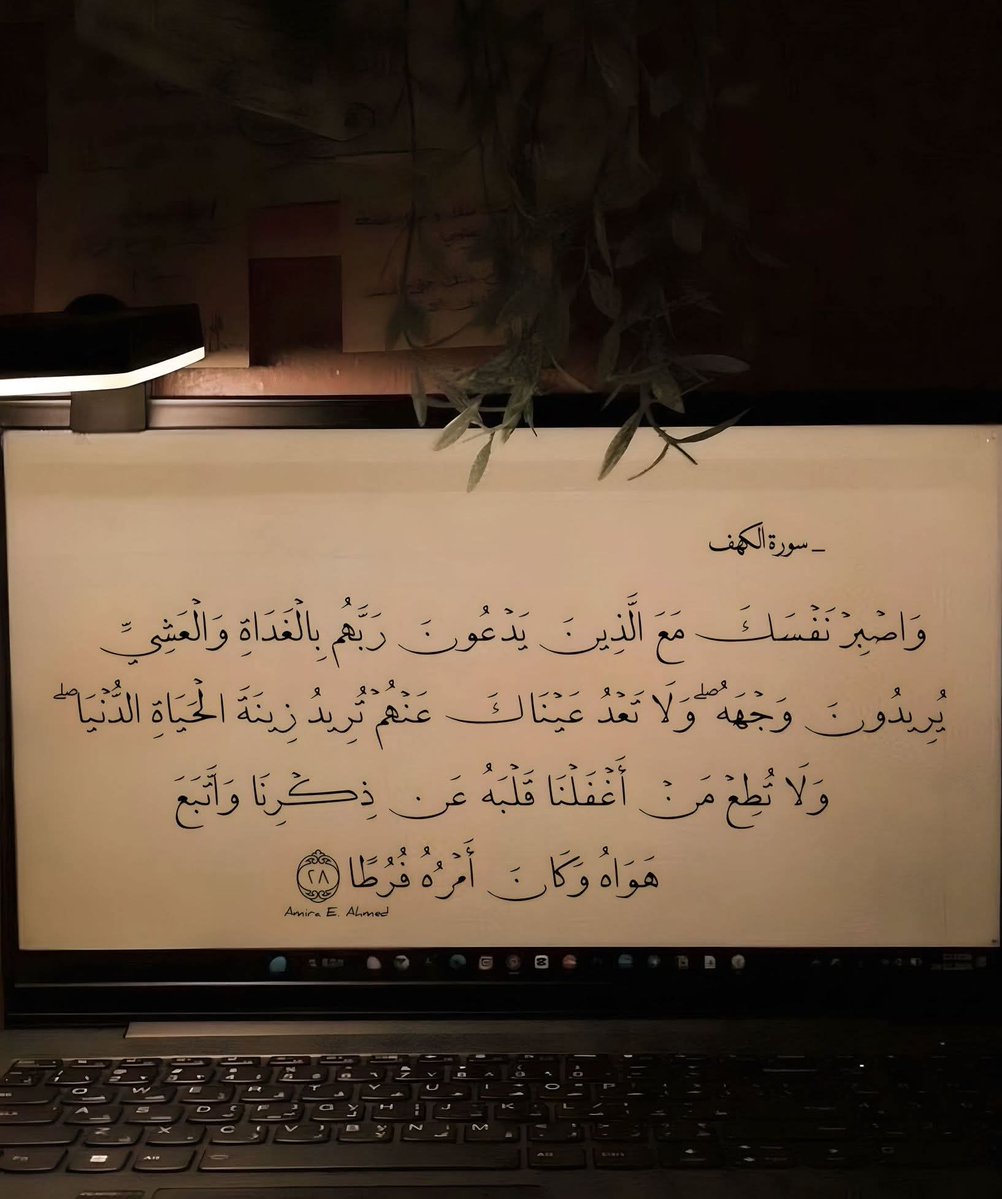 ـ سورة الكهف
وَاصْبِرْ نَفْسَكَ مَعَ الَّذِينَ يَدْعُونَ رَبَّهُم بِالْغَدَاةِ وَالْعَشِيِّ
يُرِيدُونَ وَجْهَهُ ۖ وَلَا تَعْدُ عَيْنَاكَ عَنْهُمْ تُرِيدُ زِينَةَ الْحَيَاةِ الدُّنْيَا ۖ
وَلَا تُطِعْ مَنْ أَغْفَلْنَا قَلْبَهُ عَن ذِكْرِنَا وَاتَّبَعَ
هَوَاهُ وَكَانَ أَمْرُهُ فُرُطًا ٢٨
Amira E. Ahmed
Q W E R T Y U I O P
A S D F G H J K L
Z X C V B N M
Fn Alt Alt